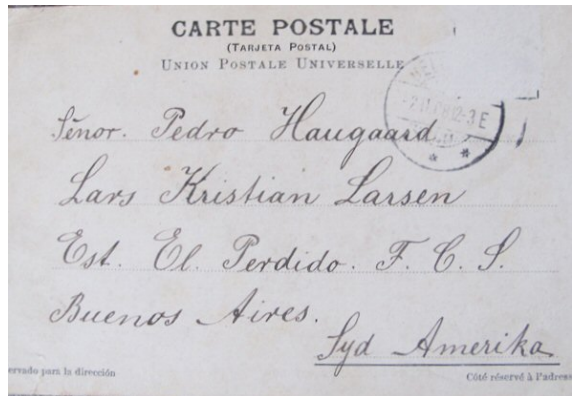 CARTE POSTALE
(TARJETA POSTAL)
UNION POSTALE UNIVERSELLE
Señor. Pedro Haugaard.
Lars Kristian Larsen
Est. El. Perdido. F. C. S.
Buenos Aires.
Syd Amerika
ervado para la dirección
Côté réservé à l'adres